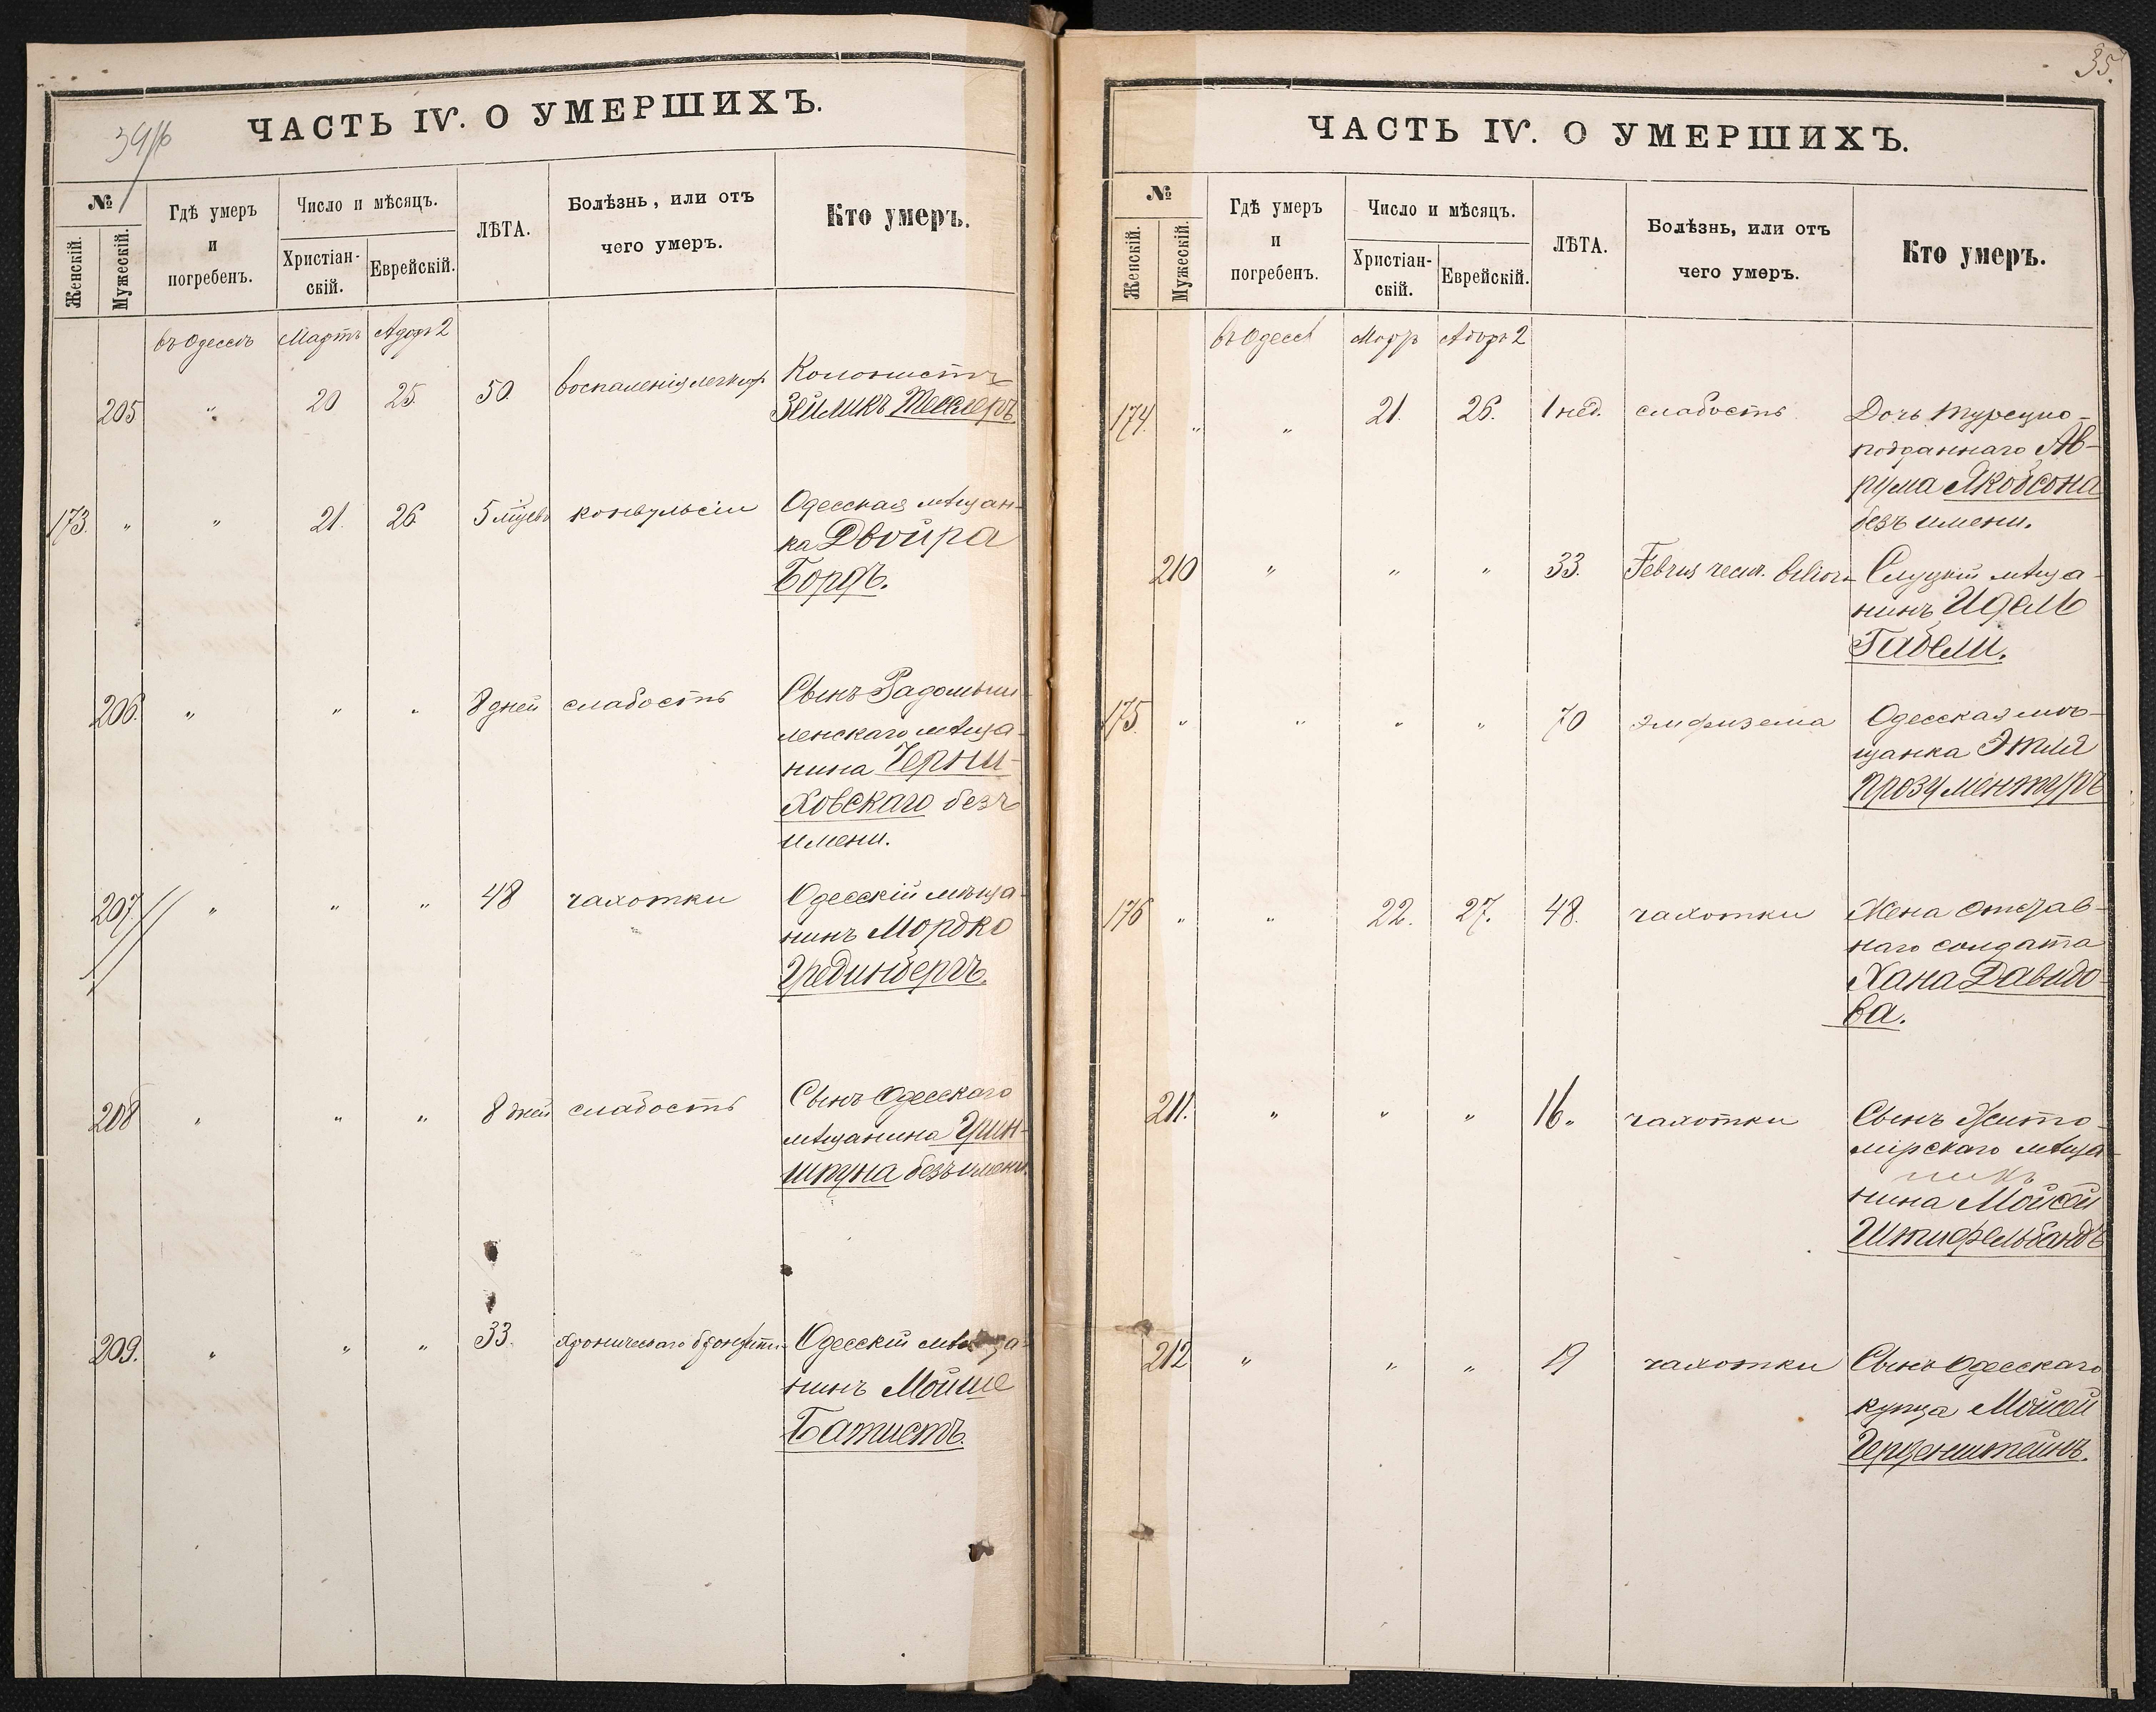 34/б
ЧАСТЬ IV. О УМЕРШИХЪ.
№
Женскій.
Мужескій.
Гдѣ умеръ
и
погребенъ.
Число и мѣсяцъ.
Христіан-
скій.
Еврейскій.
ЛѢТА.
Болѣзнь, или отъ
чего умеръ.
Кто умеръ.
въ Одессѣ Мартъ Адаръ 2
205 " 20 25. 50. воспаленія легких Колонистъ
Зейликъ Теслеръ.
173. " " 21. 26. 5 мѣсев конвульсіи Одесская мѣщан-
ка Двойра
Бордъ.
206. " " " 8 дней слабость Сынъ Радомысль-
ленскаго мѣща-
нина Черни-
ховскаго безъ
имени.
207. " " " 48 чахотки Одесскій мѣща-
нинъ Мордко
Грединбергъ.
208 " " " 8 дней слабость Сынъ Одесскаго
мѣщанина Грин-
штуна безъ имени.
209. " " " 33. хроническаго бронхит. Одесскій мѣща-
нинъ Мойше
Батистъ.
35.
ЧАСТЬ IV. О УМЕРШИХЪ.
№
Женскій.
Мужескій.
Гдѣ умеръ
и
погребенъ.
Число и мѣсяцъ.
Христіан-
скій.
Еврейскій.
ЛѢТА.
Болѣзнь, или отъ
чего умеръ.
Кто умеръ.
въ Одессѣ Мартъ Адаръ 2
174. " " 21. 26. 1 нед. слабость Дочь турецко-
подданнаго Ав-
рума Якобсона
безъ имени.
210 " " " 33. Febris recur. biliosa Слуцкій мѣща-
нинъ Идель
Габели.
175. " " " " 70 эмфизема Одесская мѣ-
щанка Этля
Прозументуръ
176 " " 22. 27. 48. чахотки Жена отстав-
наго солдата
Хана Давидо-
ва.
211. " " " 16. чахотки Сынъ Жито-
мірскаго мѣща-
нина Мойсей
Штифельбандъ
212 " " " 19 чахотки Сынъ Одесскаго
купца Мойсей
Герценштейнъ.